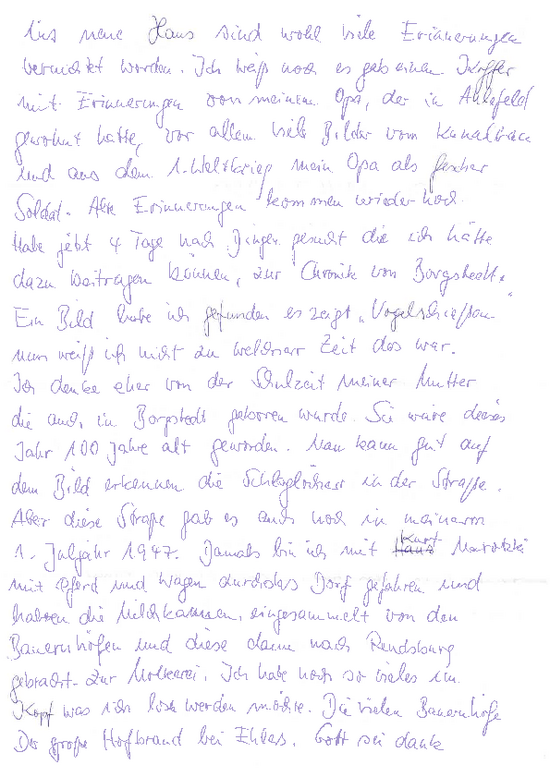 ins neue Haus sind wohl viele Erinnerungen
vernichtet worden. Ich weiß noch es gab einen Koffer
mit Erinnerungen von meinem Opa, der in Ahlefeld
gewohnt hatte, vor allem viele Bilder vom Kanalbau
und aus dem 1. Weltkrieg mein Opa als fescher
Soldat. Alte Erinnerungen kommen wieder hoch.
Habe jetzt 4 Tage nach Dingen gesucht die ich hätte
dazu beitragen können, zur Chronik von Borgstedt.
Ein Bild habe ich gefunden es zeigt "Vogelschießen"
nun weiß ich nicht zu welcher Zeit das war.
Ich denke eher von der Schulzeit meiner Mutter
die auch in Borgstedt geboren wurde. Sie wäre dieses
Jahr 100 Jahre alt geworden. Man kann gut auf
dem Bild erkennen die Schlaglöcher in der Straße.
Aber diese Straße gab es auch noch in meinem
1. Schuljahr 1947. Damals bin ich mit Kurt
mit Pferd und Wagen durch das Dorf gefahren und
haben die Milchkannen eingesammelt von den
Bauernhöfen und diese dann nach Rendsburg
gebracht zur Molkerei. Ich habe noch so vieles im
Kopf was ich los werden möchte. Die vielen Bauernhöfe
Der große Hofbrand bei Ehlers. Gott sei dank